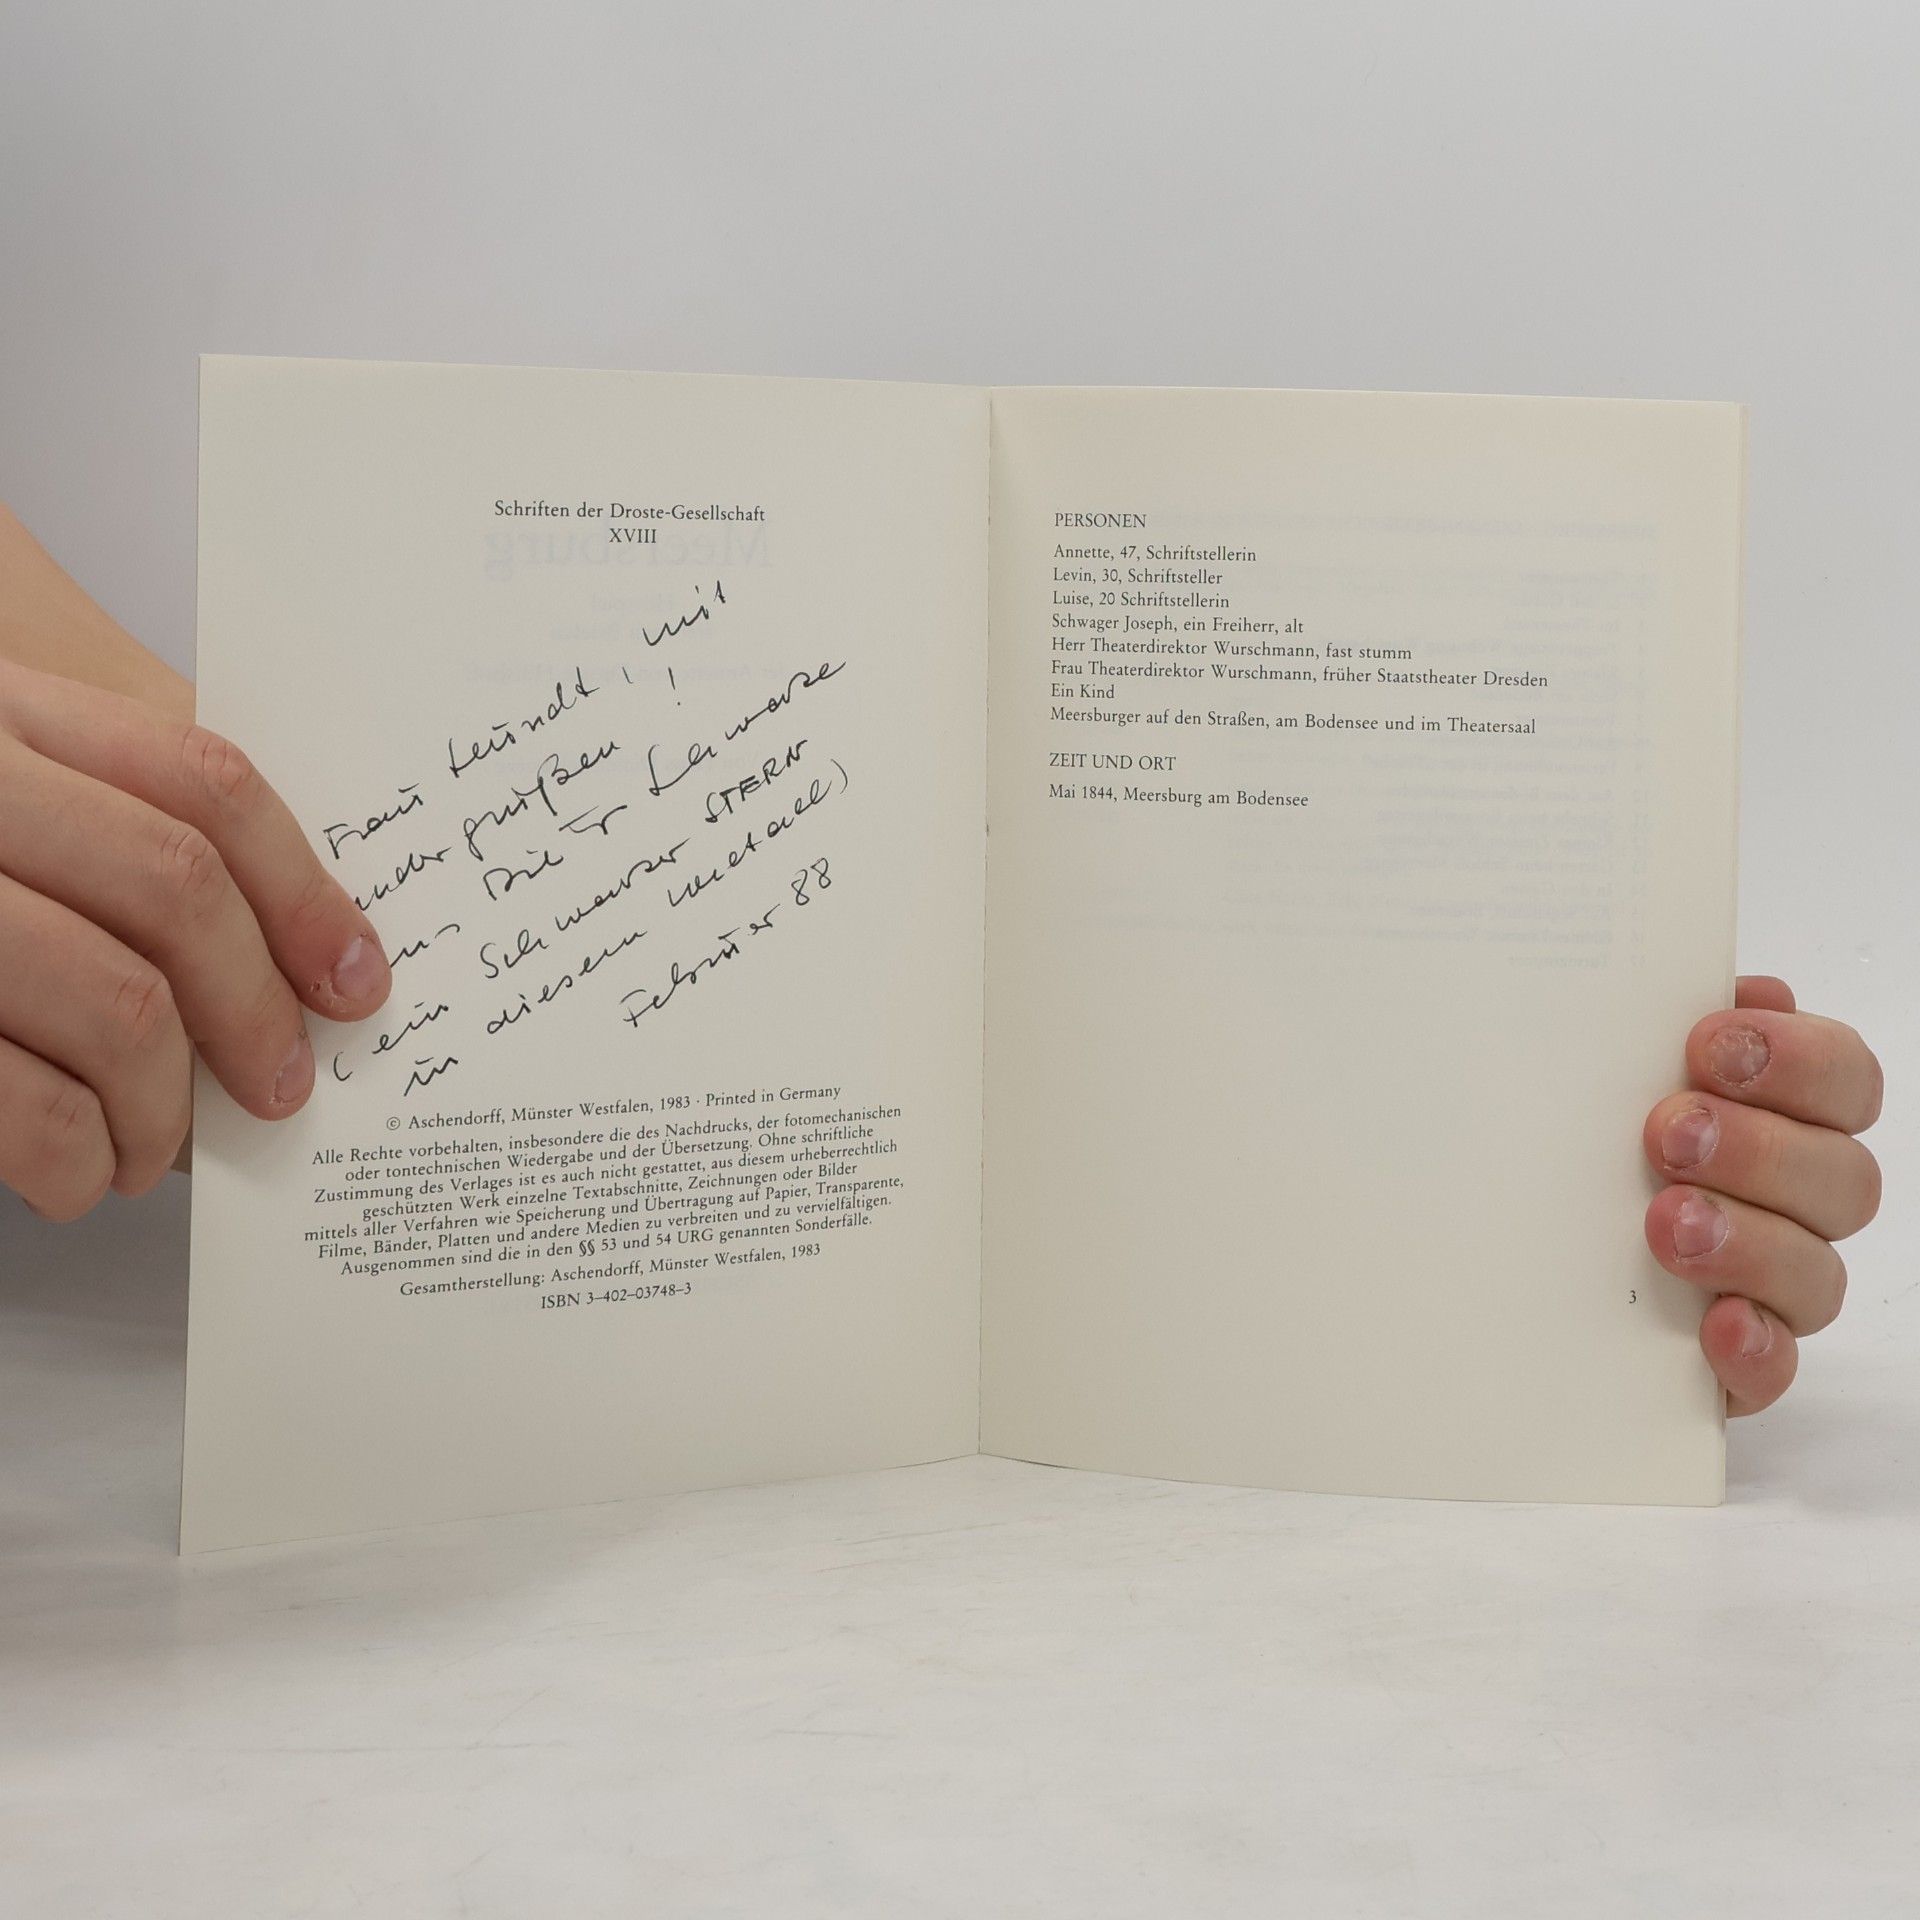 Schriften der Droste-Gesellschaft
XVIII
Frau mit
grüßen!
Schwarze
(ein Schwarzer STERN
in diesem Metall)
Februar 88
© Aschendorff, Münster Westfalen, 1983 · Printed in Germany
Alle Rechte vorbehalten, insbesondere die des Nachdrucks, der fotomechanischen
oder tontechnischen Wiedergabe und der Übersetzung. Ohne schriftliche
Zustimmung des Verlages ist es auch nicht gestattet, aus diesem urheberrechtlich
geschützten Werk einzelne Textabschnitte, Zeichnungen oder Bilder
mittels aller Verfahren wie Speicherung und Übertragung auf Papier, Transparente,
Filme, Bänder, Platten und andere Medien zu verbreiten und zu vervielfältigen.
Ausgenommen sind die in den §§ 53 und 54 URG genannten Sonderfälle.
Gesamtherstellung: Aschendorff, Münster Westfalen, 1983
ISBN 3–402–03748–3
PERSONEN
Annette, 47, Schriftstellerin
Levin, 30, Schriftsteller
Luise, 20 Schriftstellerin
Schwager Joseph, ein Freiherr, alt
Herr Theaterdirektor Wurschmann, fast stumm
Frau Theaterdirektor Wurschmann, früher Staatstheater Dresden
Ein Kind
Meersburger auf den Straßen, am Bodensee und im Theatersaal
ZEIT UND ORT
Mai 1844, Meersburg am Bodensee
3